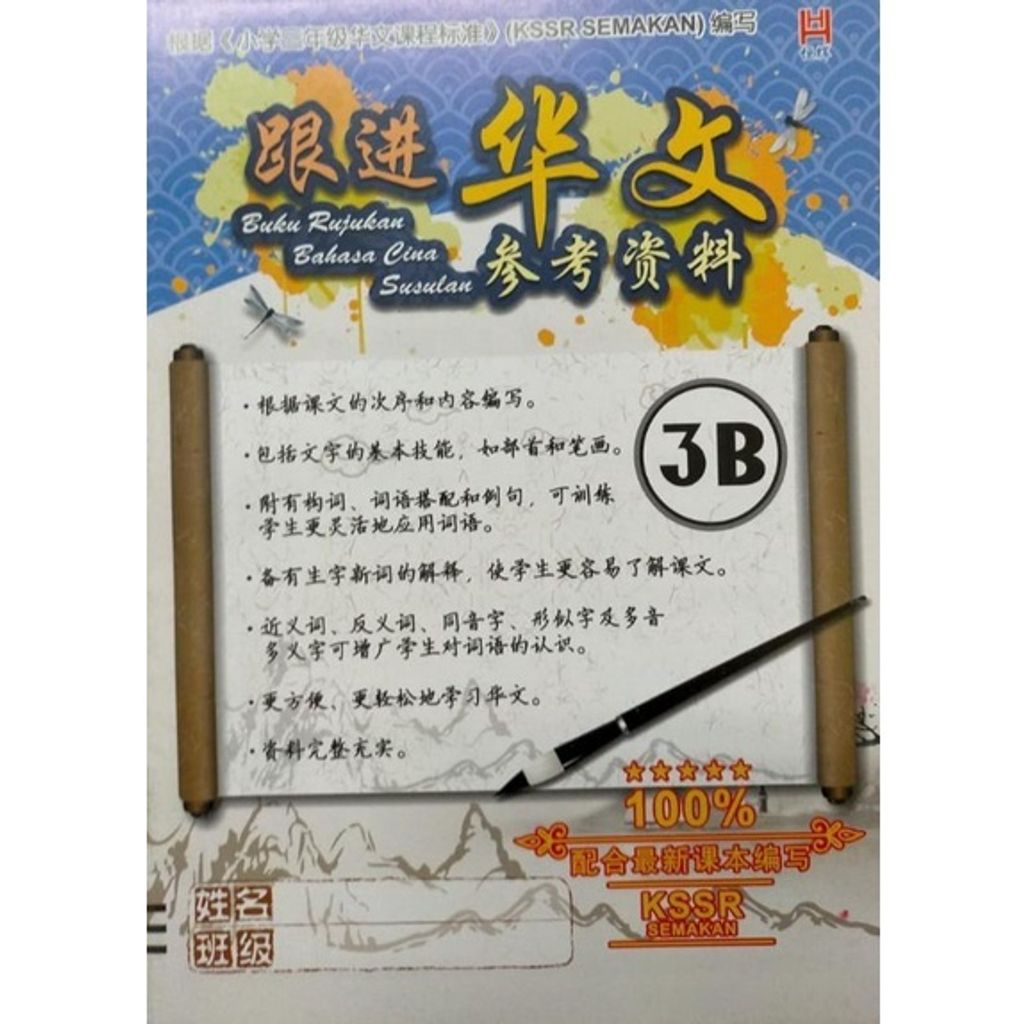 根据《小学三年级华文课程标准》(KSSR SEMAKAN) 编写
跟进 华文
Buku Rujukan
Bahasa Cina
Susulan
参考资料
3B
· 根据课文的次序和内容编写。
· 包括文字的基本技能，如部首和笔画。
· 附有构词、词语搭配和例句，可训练
学生更灵活地应用词语。
· 备有生字新词的解释，使学生更容易了解课文。
· 近义词、反义词、同音字、形似字及多音
多义字可增广学生对词语的认识。
· 更方便、更轻松地学习华文。
· 资料完整充实。
100%
配合最新课本编写
KSSR
SEMAKAN
姓名
班级